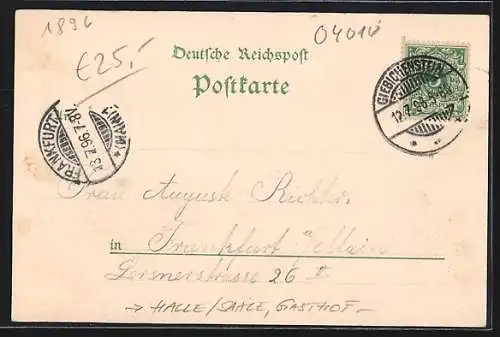 1896
€25,-
04010
Deutsche Reichspost
Postkarte
GIEBICHENSTEIN
12.7.96.
FRANKFURT
(MAIN)1
13.7.96.7-8V.
Frau Auguste Richter.
in Frankfurt a/Main
Lersnerstrasse 26 II
→ HALLE/SAALE, GASTHOF -